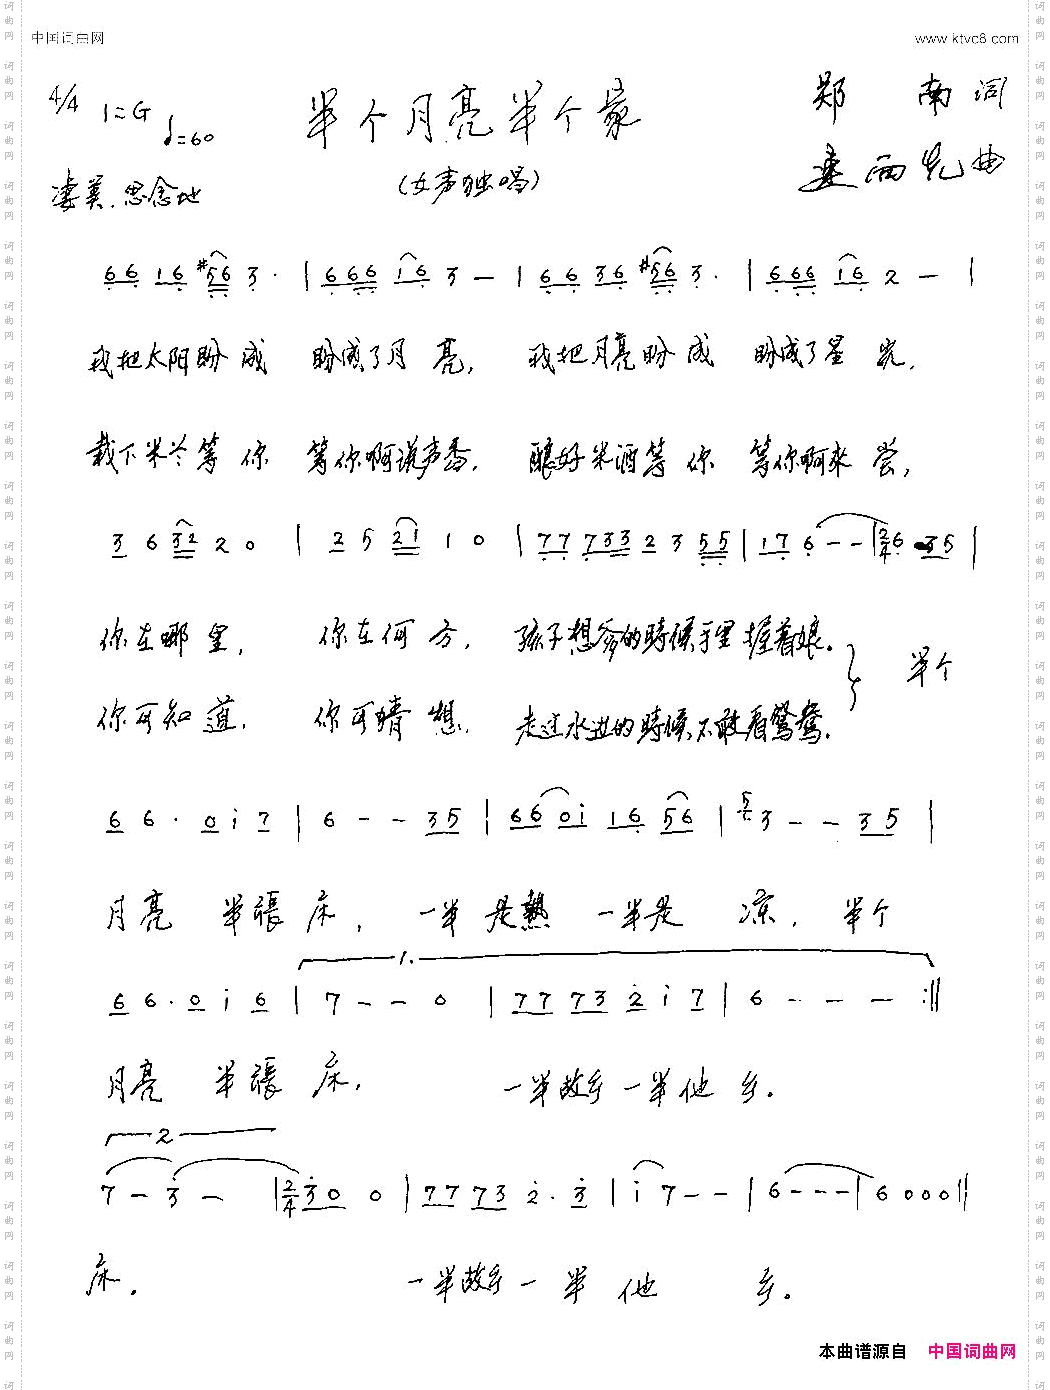 中国词曲网 www.ktvc8.com
4/4 1=G ♩=60 半个月亮半个家 郑南词
凄美、思念地 (女声独唱) 曲
66 16 #56 3· | 666 16 3 — | 66 36 #56 3· | 666 16 2 — |
我把太阳盼成 盼成了月亮, 我把月亮盼成 盼成了星光,
栽下米兰等你 等你啊说声香, 酿好米酒等你 等你啊来尝,
3 6 32 2 0 | 2 5 21 1 0 | 77 733 2 3 55 | 17 6 - - | 2/4 6 35 |
你在哪里, 你在何方, 孩子想爹的時候手里握着娘。 半个
你可知道, 你可猜想, 走过水边的時候不敢看鸳鸯.
6 6· 0 i 7 | 6 - - 35 | 66 0i 16 56 | 5 3 - - 35 |
月亮 半張床, 一半是熱 一半是 凉, 半个
1.
6 6· 0 i 6 | 7 - - 0 | 77 73 2 i 7 | 6 - - - :||
月亮 半張床, 一半故乡一半他乡.
2
7 - 3 - | 2/4 3 0 0 | 77 73 2· 3 | i 7 - - | 6 - - - | 6 0 0 0 ||
床. 一半故乡一半他 乡.
本曲谱源自 中国词曲网